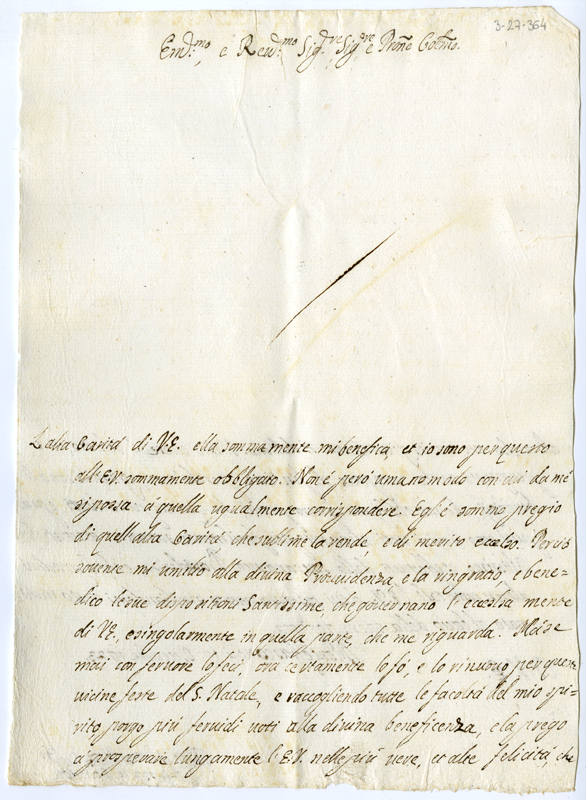 3-27-364
Em.mo e Rev.mo Sig.re Sig.re e Prone Col.mo
L'alta Carità di V.E. ella sommamente mi benefica, et io sono per questo
all'E.V. sommamente obbligato. Non é però umano modo con cui da mé
si possa á quella ugualmente corrispondere. Egl'é sommo pregio
di quell'alta Carità che sublime la rende, e di merito eccelso. Perciò
sovente mi umilio alla divina Provvidenza, e la ringratio, e bene-
dico le sue dispositioni Santissime, che governano l'eccelsa mente
di V.E., e singolarmente in quella parte, che me riguarda. Má se
mai con fervore lo feci, ora certamente lo fó, e lo rinuovo per queste
vicine feste del S. Natale, e raccogliendo tutte le facoltá del mio spi-
rito porgo piú fervidi voti alla divina beneficenza, e la prego
á prosperare lungamente l'E.V. nelle piú vere, et alte felicitá, che